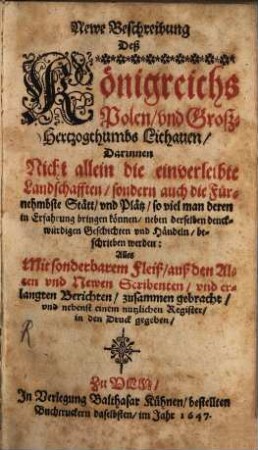 Newe Beschreibung
Deß
Königreichs
Polen/ vnd Groß-
Hertzogthumbs Lithauen/
Darinnen
Nicht allein die einverleibte
Landschafften/ sondern auch die Für-
nehmbste Stätt/ vnd Plätz/ so viel man deren
in Erfahrung bringen können/ neben derselben denck-
würdigen Geschichten vnd Händeln/ be-
schrieben werden:
Alles
Mit sonderbarem Fleiß/ auß den Al-
ten vnd Newen Scribenten/ vnd er-
langten Berichten/ zusammen gebracht/
vnd nebenst einem nutzlichen Register/
in den Druck gegeben/
R
Zu VLM/
In Verlegung Balthasar Kühnen/ bestellten
Buchtruckern daselbsten/ im Jahr 1647.